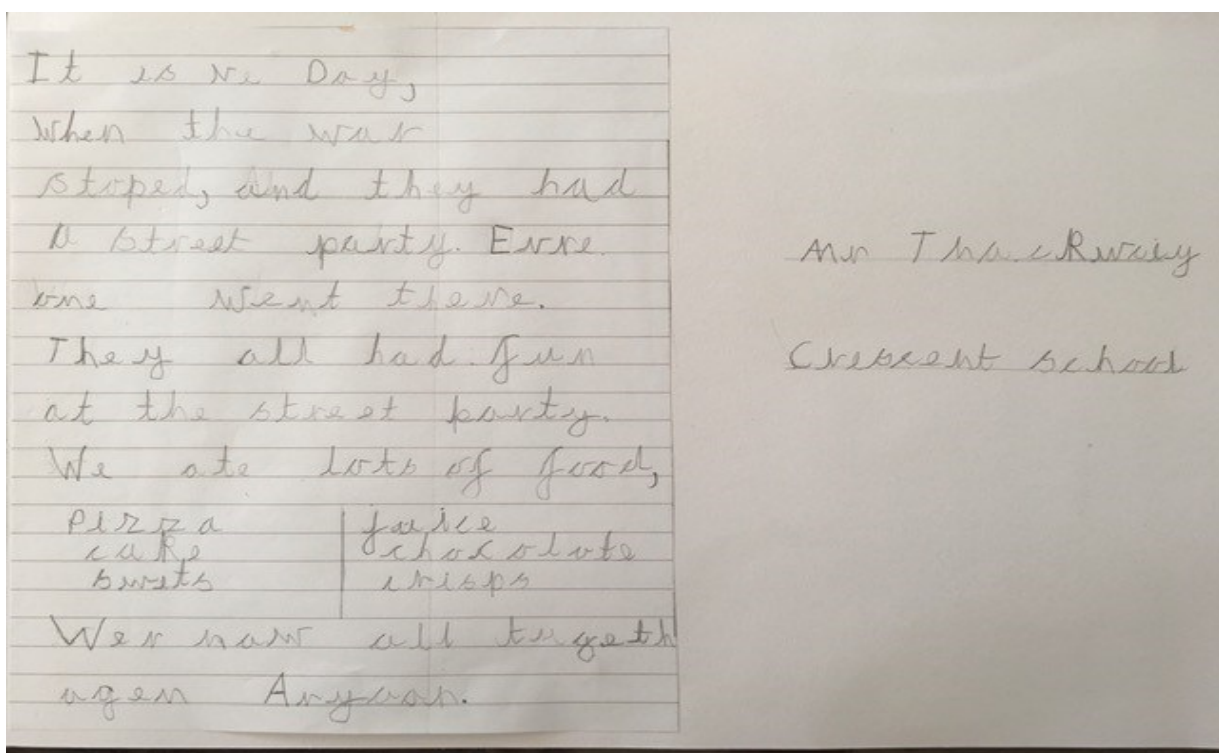 It is Ve Day,
When the war
stoped, and they had
a street party. Evre
one went there.
They all had fun
at the street party.
We ate lots of food,
pizza
cake
swets
juice
chocolate
crisps
Wer naw all tugeth
agen
Mr Thackwray
Crescent school